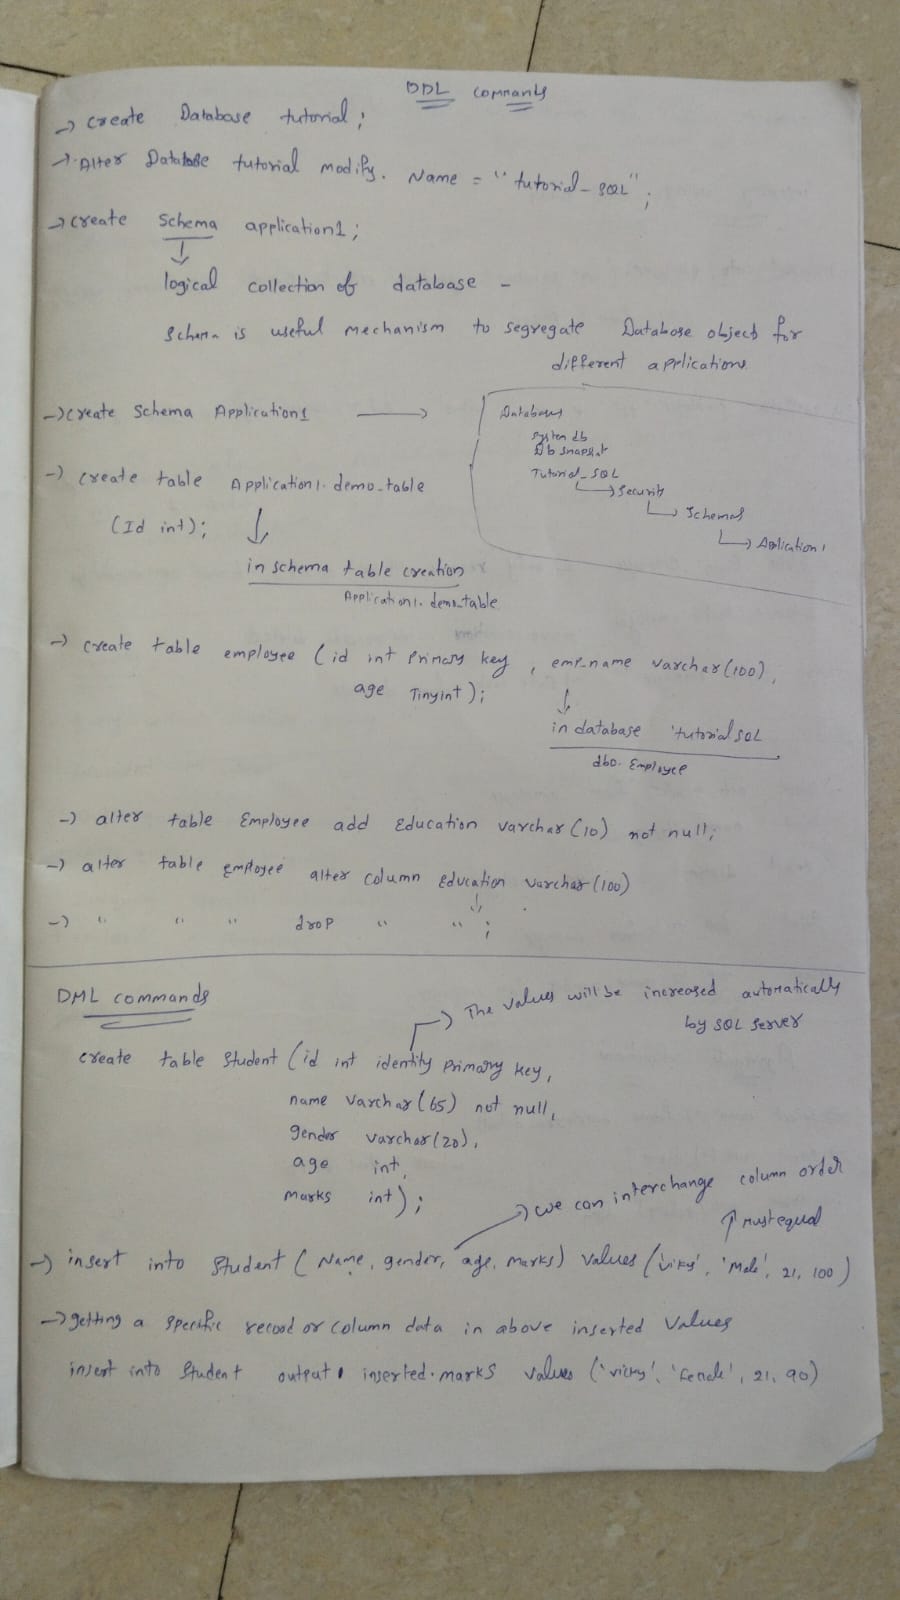 DDL commands
-> create Database tutorial;
-> Alter Database tutorial modify. Name = "tutorial-SQL";
-> create Schema application1;
logical collection of database -
Schema is useful mechanism to segregate Database object for
different applications
-> create Schema Application1 ->
Databases
System db
Db snapshot
Tutorial_SQL
-> Security
-> Schemas
-> Application1
-> create table Application1.demo_table
(Id int);
in schema table creation
Application1.demo_table
-> create table employee (id int Primary key, emp_name varchar(100),
age Tinyint);
in database 'tutorialSQL
dbo. Employee
-> alter table Employee add Education varchar(10) not null;
-> alter table employee alter column Education varchar(100)
-> " " " drop " " ;
DML commands
-> The values will be increased automatically
by SQL Server
create table Student (id int identity Primary key,
name varchar(65) not null,
gender varchar(20),
age int,
marks int);
-> we can interchange column order
↑ must equal
-> insert into Student (Name, gender, age, marks) values ('viky', 'Male', 21, 100)
-> getting a specific record or column data in above inserted values
insert into Student output inserted.marks values ('vicky', 'female', 21, 90)